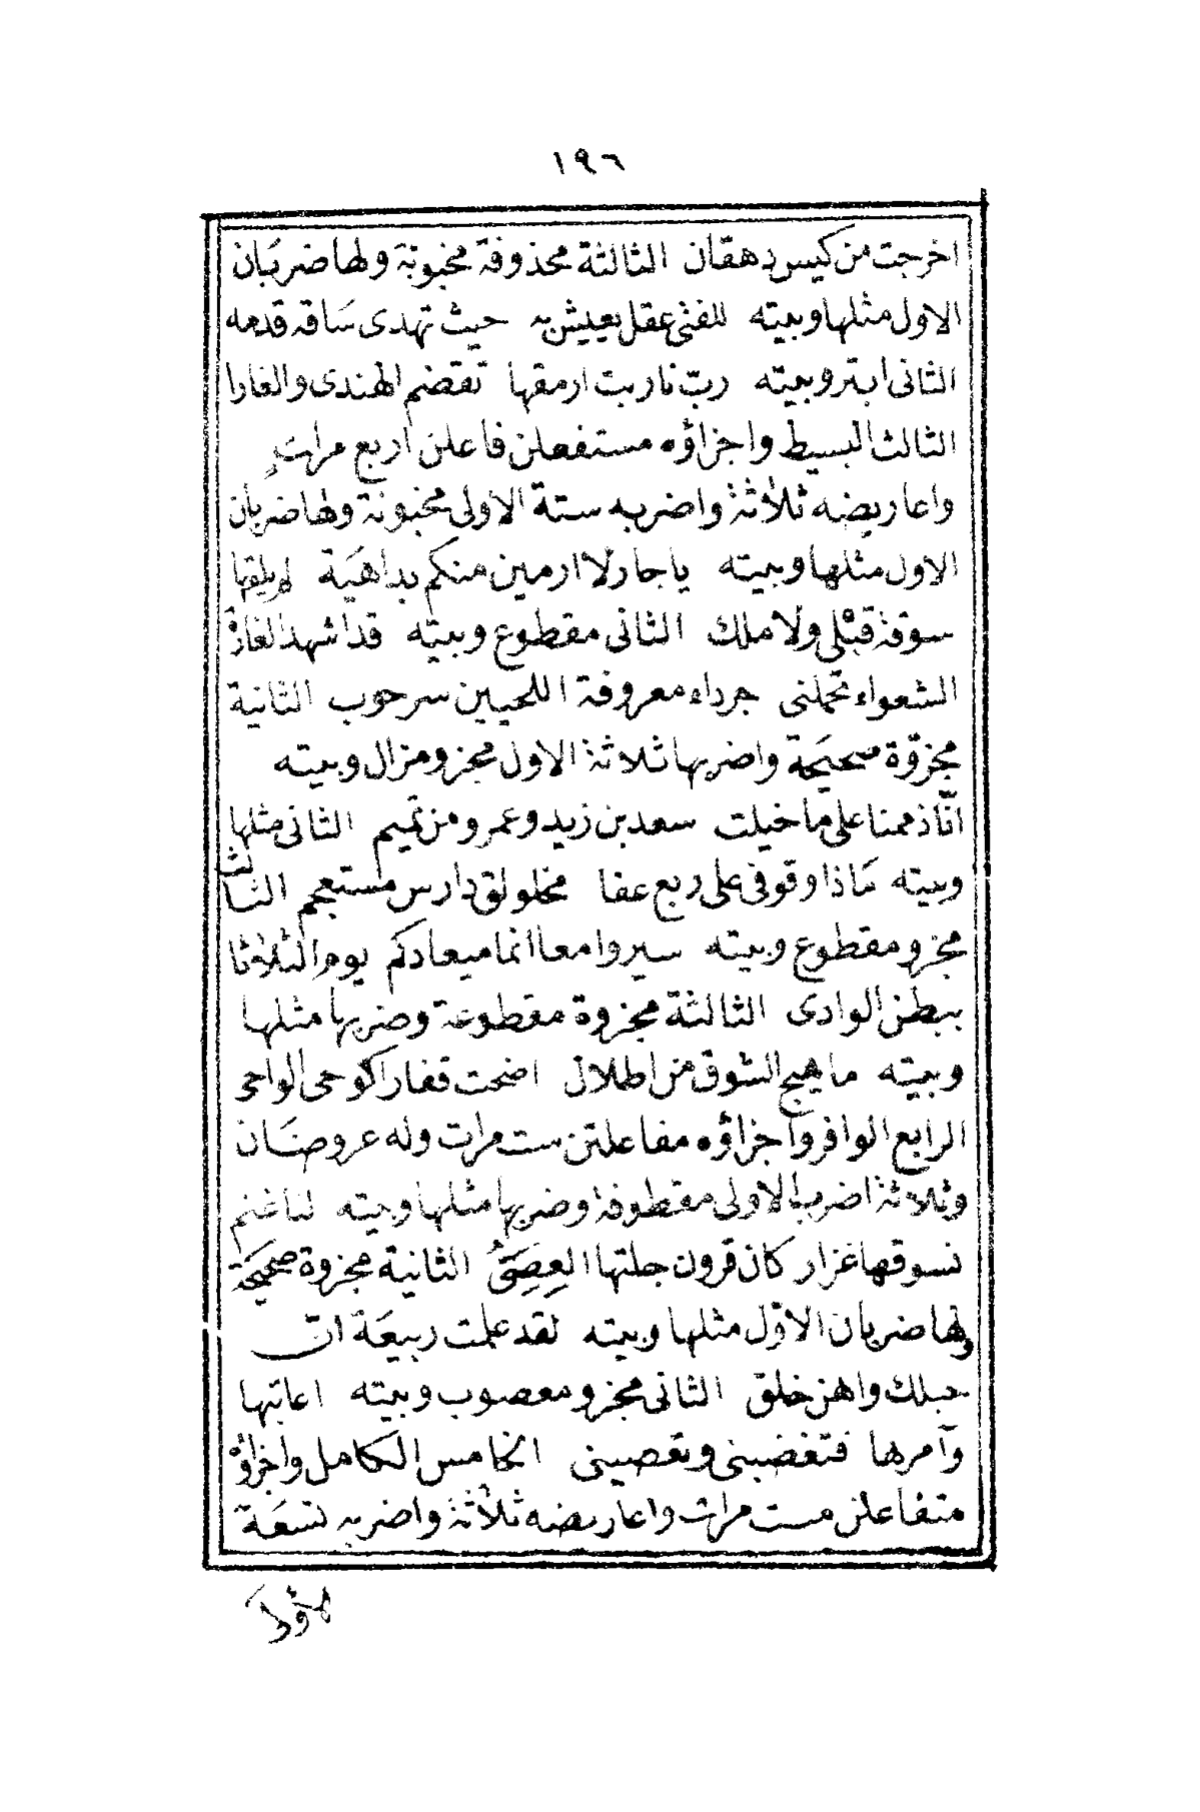 ١٩٦
اخرجت من كيس دهقان الثالثة محذوفة مخبونة ولها ضربان
الاول مثلها وبيته للفتى عقل يعيش به حيث تهدى ساقه قدمه
الثانى ابتر وبيته رب نار بت ارمقها تقضم الهندى والغارا
الثالث البسيط واجزاؤه مستفعلن فاعلن اربع مرات
واعاريضه ثلاثة واضربه ستة الاولى مخبونة ولها ضربان
الاول مثلها وبيته ياحار لا ارمين منكم بداهية لم يلقها
سوقة قبلى ولا ملك الثانى مقطوع وبيته قد اشهد الغارة
الشعواء تحملنى جرداء معروقة اللحيين سرحوب الثانية
مجزوّة صحيحة واضربها ثلاثة الاول مجزو مزال وبيته
انّا ذممنا على ما خيلت سعد بن زيد وعمرو من تميم الثانى مثلها
وبيته ماذا وقوفى على ربع عفا مخلولق دارس مستعجم الثالث
مجزو مقطوع وبيته سيروا معا انما ميعادكم يوم الثلاثا
ببطن الوادى الثالثة مجزوة مقطوعة وضربها مثلها
وبيته ما هيج الشوق من اطلال اضحت قفارا كوحى الواحى
الرابع الوافر واجزاؤه مفاعلتن ست مرات وله عروضان
وثلاثة اضرب الاولى مقطوفة وضربها مثلها وبيته لنا غنم
نسوقها غزار كان قرون جلتها العِصِىُّ الثانية مجزوة صحيحة
ولها ضربان الاوّل مثلها وبيته لقد علمت ربيعة انّ
حبلك واهن خلق الثانى مجزو معصوب وبيته اعاتبها
وآمرها فتغضبنى وتعصينى الخامس الكامل واجزاؤه
متفاعلن ست مرات واعاريضه ثلاثة واضربه تسعة